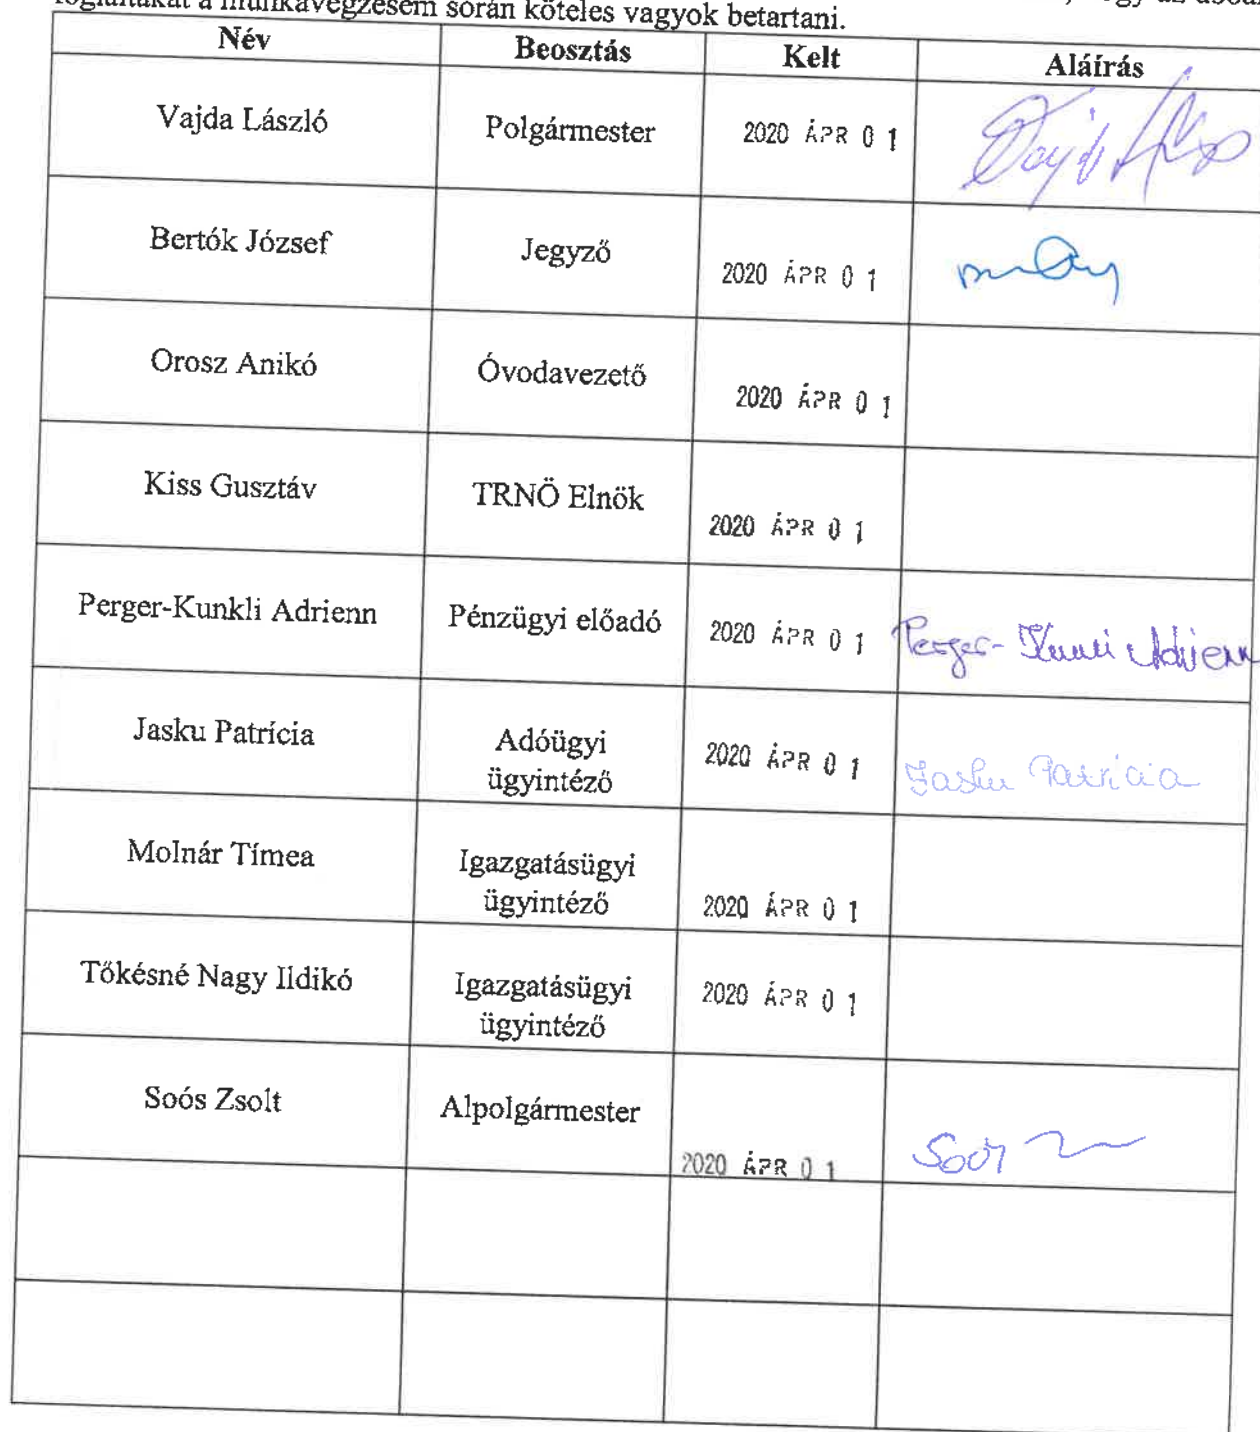 foglaltakat a munkavégzésem során köteles vagyok betartani.
Név Beosztás Kelt Aláírás
Vajda László Polgármester 2020 ÁPR 0 1
Bertók József Jegyző 2020 ÁPR 0 1
Orosz Anikó Óvodavezető 2020 ÁPR 0 1
Kiss Gusztáv TRNÖ Elnök 2020 ÁPR 0 1
Perger-Kunkli Adrienn Pénzügyi előadó 2020 ÁPR 0 1 Perger-Kunkli Adrienn
Jasku Patrícia Adóügyi
ügyintéző 2020 ÁPR 0 1 Jasku Patrícia
Molnár Tímea Igazgatásügyi
ügyintéző 2020 ÁPR 0 1
Tőkésné Nagy Ildikó Igazgatásügyi
ügyintéző 2020 ÁPR 0 1
Soós Zsolt Alpolgármester 2020 ÁPR 0 1 Soós